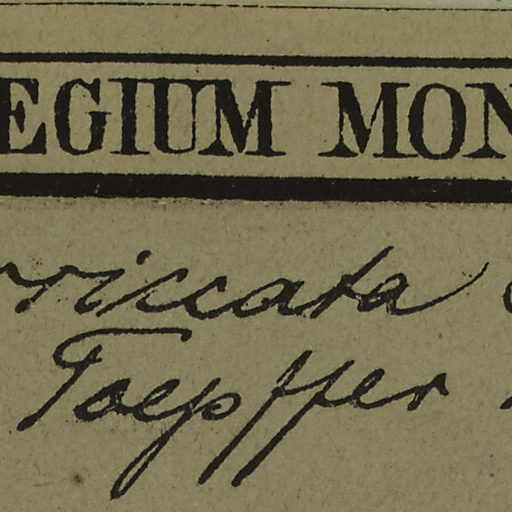 EGIUM MON
rriccata
Toepffer